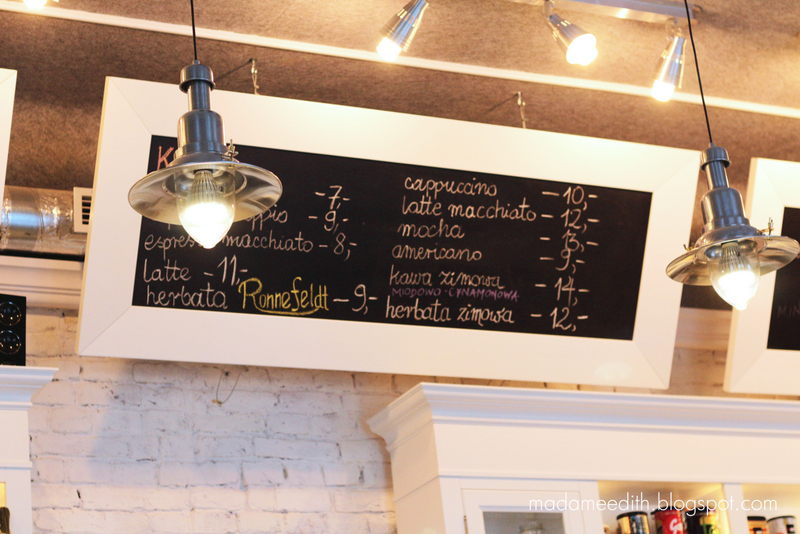 -7,-
-9,-
macchiato -8,-
latte -11,-
herbata Ronnefeldt -9,-
cappuccino -10,-
latte macchiato -12,-
mocha -13,-
americano -9,-
kawa zimowa -14,-
MIODOWO-CYNAMONOWA
herbata zimowa -12,-
madameedith.blogspot.com